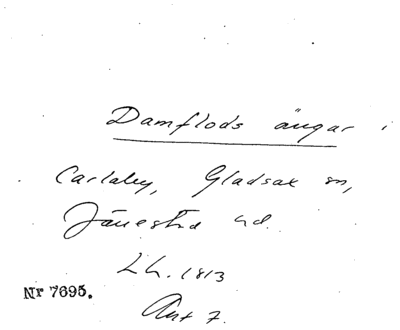 Damflods ängar i
Carlaby, Gladsax sn,
Järrestad hd.
Lh. 1813
Nr 7695.
Ant 7.